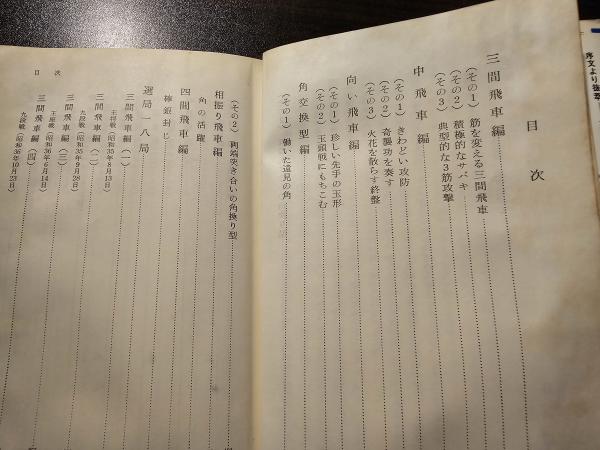 目次
三間飛車編
(その1) 筋を変える三間飛車
(その2) 積極的なサバキ
(その3) 典型的な3筋攻撃
中飛車編
(その1) きわどい攻防
(その2) 奇襲功を奏す
(その3) 火花を散らす終盤
向い飛車編
(その1) 珍しい先手の玉形
(その2) 玉頭戦にもちこむ
角交換型編
(その1) 働いた遠見の角
(その2) 両端突き合いの角換り型
相振り飛車編
角の活躍
四間飛車編
棒銀封じ
選局一八局
三間飛車編(一)
王将戦(昭和35年8月13日)
三間飛車編(二)
九段戦(昭和35年9月28日)
三間飛車編(三)
王座戦(昭和36年6月14日)
三間飛車編(四)
九段戦(昭和36年10月23日)
目次
序文より抜萃